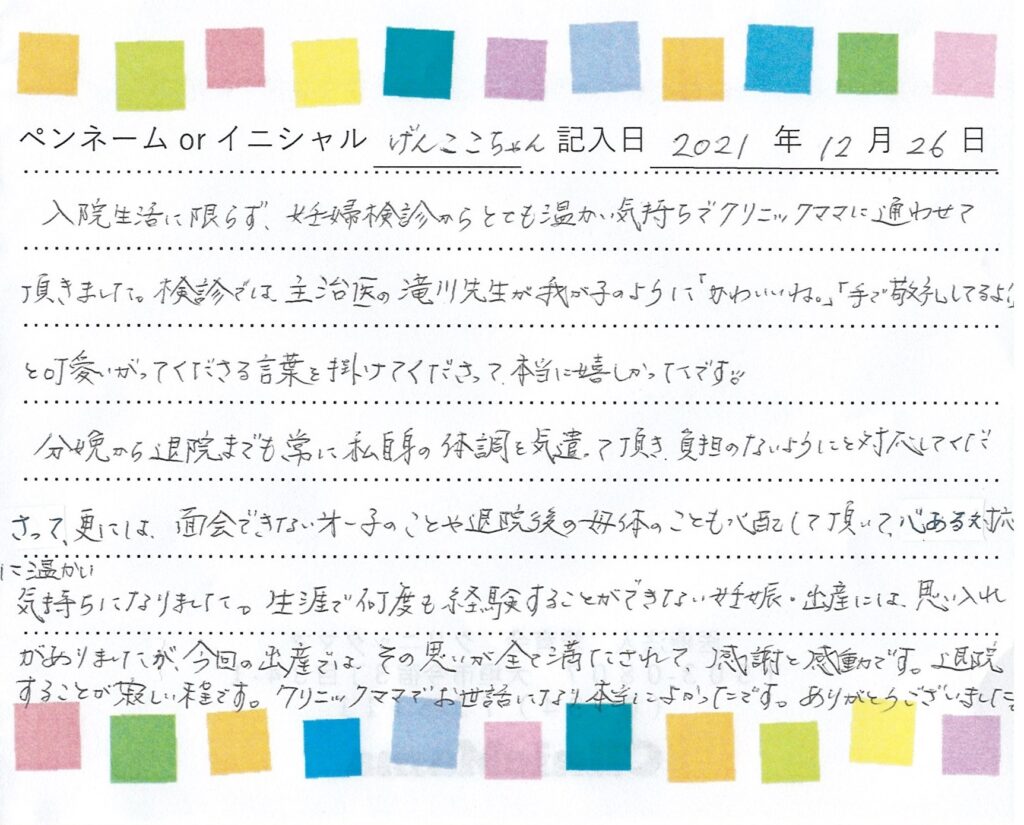 ペンネーム or イニシャル げんここちゃん 記入日 2021 年 12 月 26 日
入院生活に限らず、妊婦検診からとても温かい気持ちでクリニックママに通わせて
頂きました。検診では、主治医の滝川先生が我が子のように「かわいいね。」「手で敬礼してるよ
と可愛いがってくださる言葉を掛けてくださって、本当に嬉しかったです!!
分娩から退院までも、常に私自身の体調を気遣って頂き、負担のないようにと対応してくだ
さって、更には、面会できない才一子のことや退院後の母体のことも心配して頂いて、心ある対応
に温かい
気持ちになりました。生涯で何度も経験することができない妊娠・出産には、思い入れ
がありましたが、今回の出産では、その思いが全て満たされて、感謝と感動です。退院
することが寂しい程です。クリニックママでお世話になり本当によかったです。ありがとうございました